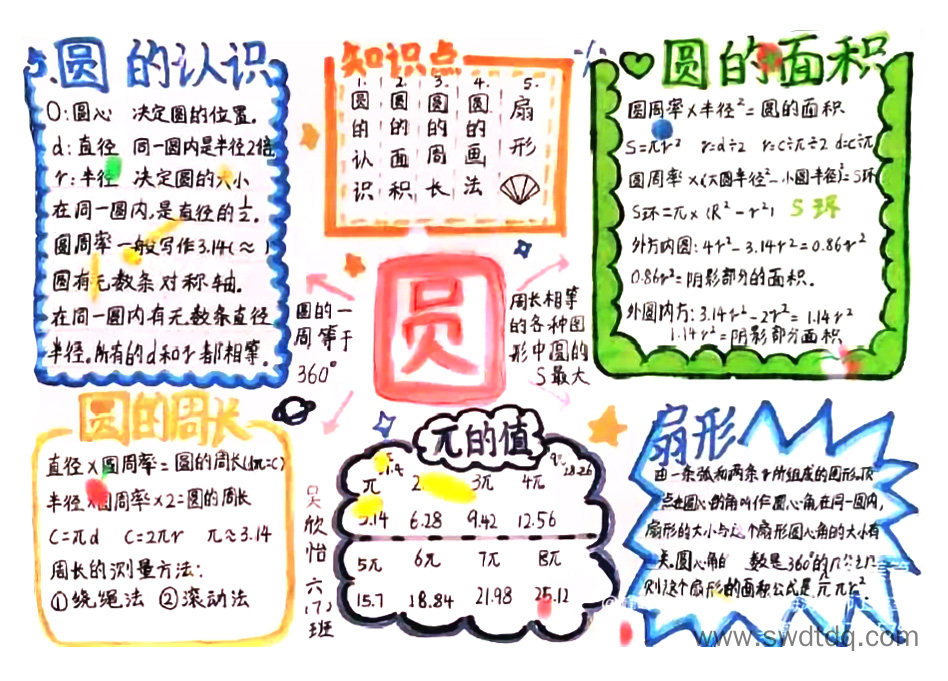 5.圆的认识
O:圆心 决定圆的位置。
d:直径 同一圆内是半径2倍
r:半径 决定圆的大小
在同一圆内,是直径的½。
圆周率一般写作3.14(≈)
圆有无数条对称轴。
在同一圆内有无数条直径
半径。所有的d和r都相等。
知识点
1.圆的认识
2.圆的面积
3.圆的周长
4.圆的画法
5.扇形
圆的面积
圆周率×半径²=圆的面积
S=πr² r=d÷2 r=c÷π÷2 d=c÷π
圆周率×(大圆半径²-小圆半径²)=S环
S环=π×(R²-r²) S环
外方内圆:4r²-3.14r²=0.86r²
0.86r²=阴影部分的面积。
外圆内方:3.14r²-2r²=1.14r²
1.14r²=阴影部分面积
圆的一
周等于
360°
圆
周长相等
的各种图
形中圆的
S最大
圆的周长
直径×圆周率=圆的周长(dπ=C)
半径×圆周率×2=圆的周长
C=πd C=2πr π≈3.14
周长的测量方法:
①绕绳法 ②滚动法
吴欣怡六(7)班
π的值
28.26
π 2 3π 4π
3.14 6.28 9.42 12.56
5π 6π 7π 8π
15.7 18.84 21.98 25.12
扇形
由一条弧和两条r所组成的图形,顶
点在圆心的角叫作圆心角在同一圆内,
扇形的大小与这个扇形圆心角的大小有
关。圆心角的 数是360°的几分之几
则这个扇形的面积公式是 πr²。
www.swdtdq.com